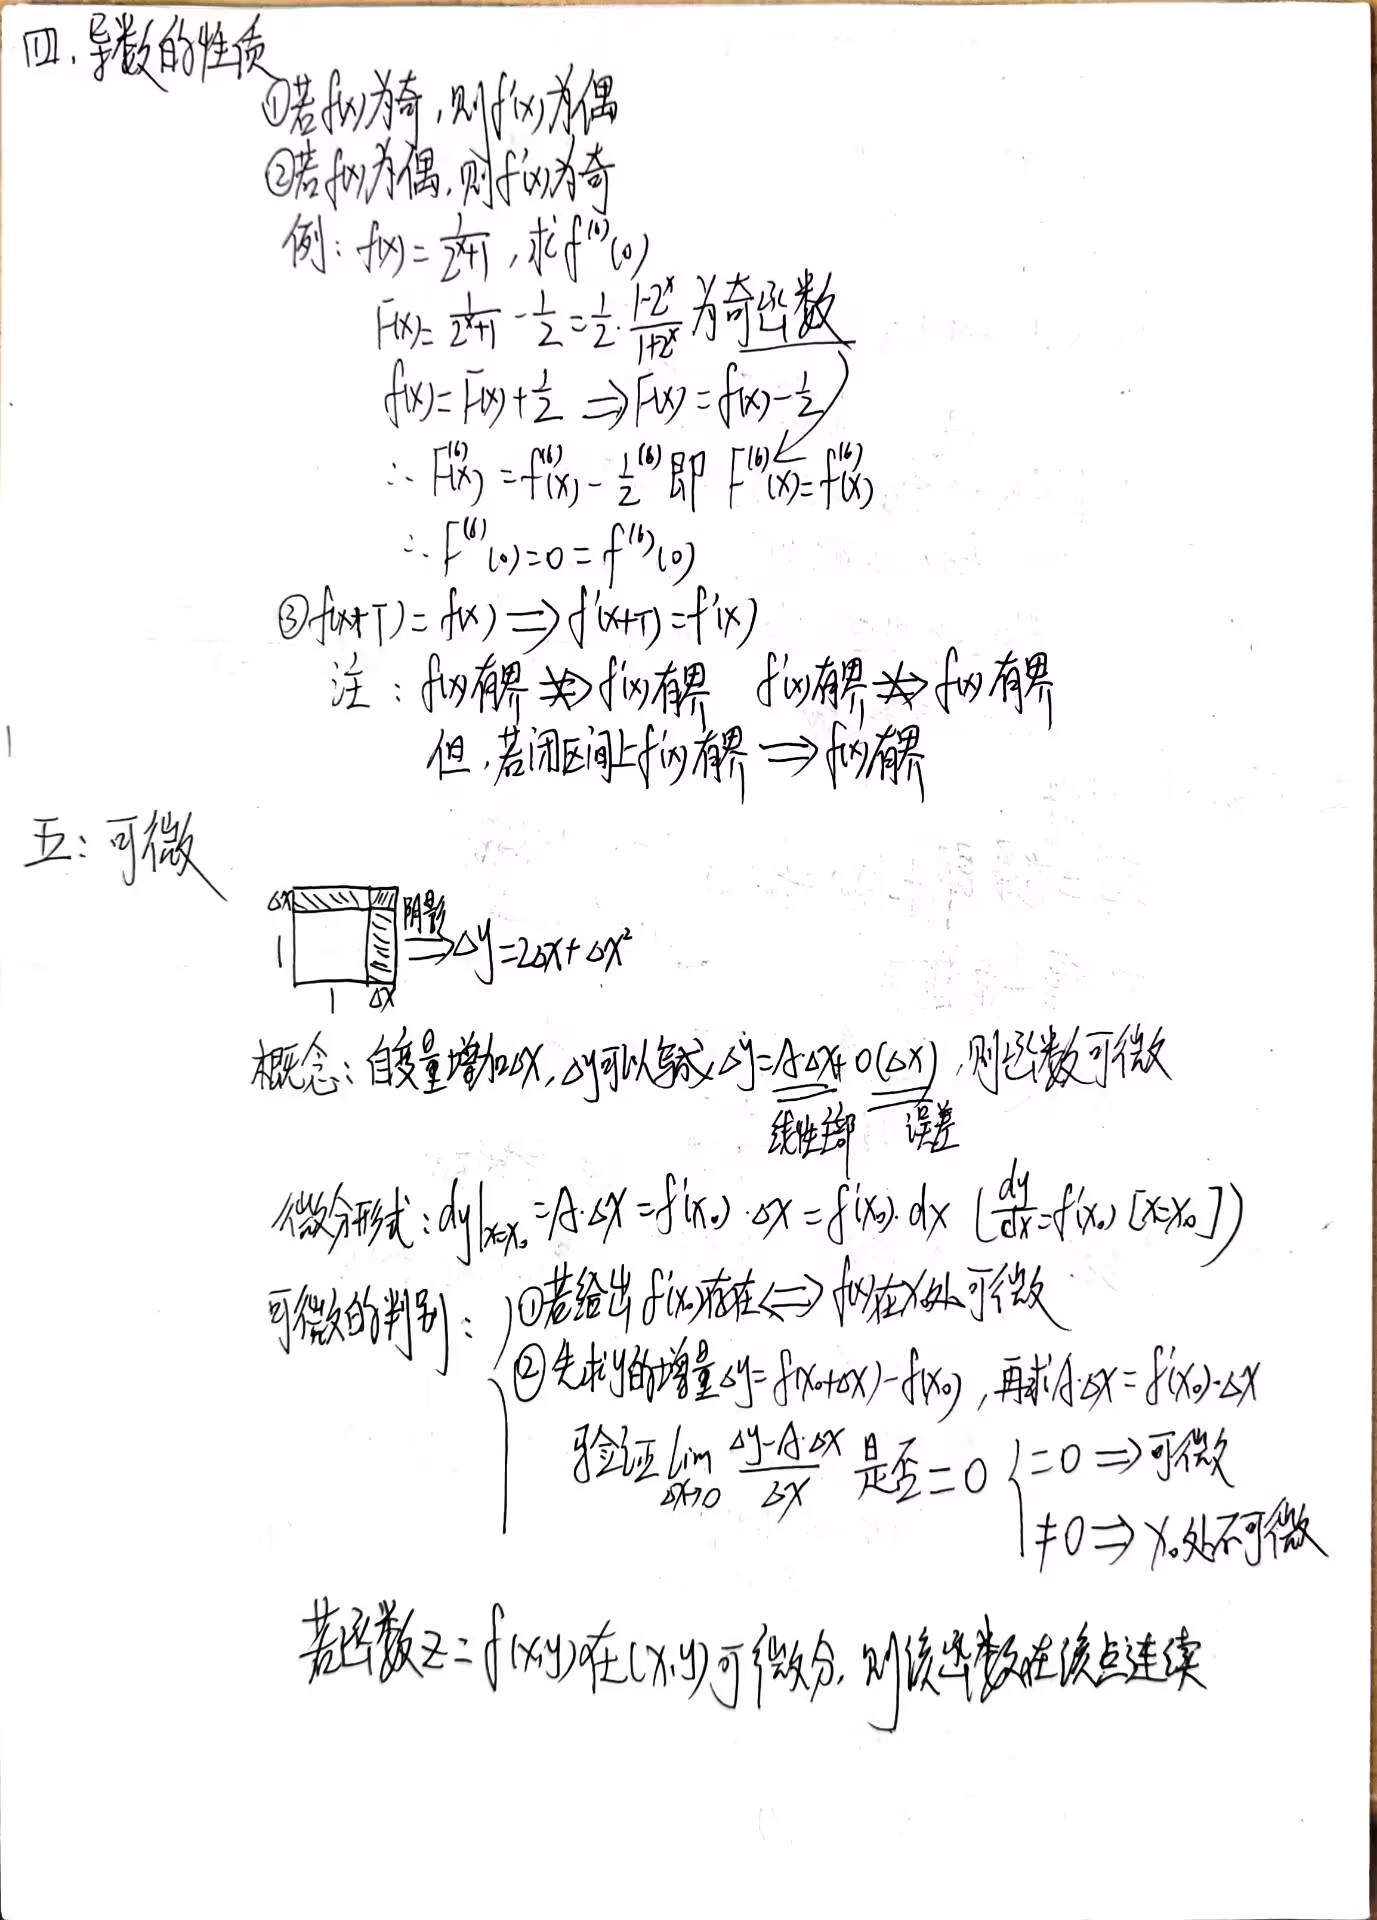 四、导数的性质
①若f(x)为奇,则f'(x)为偶
②若f(x)为偶,则f'(x)为奇
例：f(x)=1/(2^x+1),求f^(6)(0)
F(x)=1/(2^x+1)-1/2=1/2·(1-2^x)/(1+2^x)为奇函数
f(x)=F(x)+1/2⇒F(x)=f(x)-1/2
∴F^(6)(x)=f^(6)(x)-1/2^(6)即F^(6)(x)=f^(6)(x)
∴F^(6)(0)=0=f^(6)(0)
③f(x+T)=f(x)⇒f'(x+T)=f'(x)
注：f(x)有界⇏f'(x)有界 f'(x)有界⇏f(x)有界
但,若闭区间上f'(x)有界⇒f(x)有界
五：可微
Δx
阴影
1 ⇒Δy=2Δx+Δx²
1 Δx
概念：自变量增加Δx,Δy可以写成Δy=A·Δx+o(Δx),则函数可微
线性主部 误差
微分形式：dy|x=x₀=A·Δx=f'(x₀)·Δx=f'(x₀)·dx(dy/dx=f'(x₀)[x=x₀])
可微的判别：①若给出f'(x₀)存在⇔f(x)在x₀处可微
②先求y的增量Δy=f(x₀+Δx)-f(x₀),再求A·Δx=f'(x₀)·Δx
验证lim Δx→0 (Δy-A·Δx)/Δx是否=0 =0⇒可微
≠0⇒x₀处不可微
若函数z=f(x,y)在(x,y)可微分,则该函数在该点连续